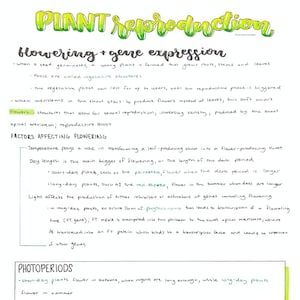 PLANT reproduction
flowering + gene expression
- when a seed germinates, a young plant is formed that grows roots, stems and leaves
- these are called vegetative structures
- the vegetative phase can last for up to years, until the reproductive phase is triggered
- when meristems in the shoot start to produce flowers instead of leaves,
flowers: structures that allow for sexual reproduction, increasing variety; produced by the shoot
apical meristem; reproductive shoot
FACTORS AFFECTING FLOWERING
Temperature plays a role in transforming a leaf-producing shoot into a flower-producing shoot
Day length is the main trigger of flowering, or the length of the dark period
- short-day plants, such as the poinsettia, flower when the dark period is longer
- long-day plants, such as the red clover, flower in the summer when days are longer
Light affects the production of either inhibitors or activators of genes controlling flowering
- in long-day plants, the active form of phytochrome leads to transcription of a flowering
time (FT gene); FT mRNA is transported via the phloem to the shoot apical meristem, where
it's translated into an FT protein which binds to a transcription factor and leads to
of other genes
PHOTOPERIODS
- short-day plants flower in autumn, when nights are long enough, while long-day plants
flower in summer